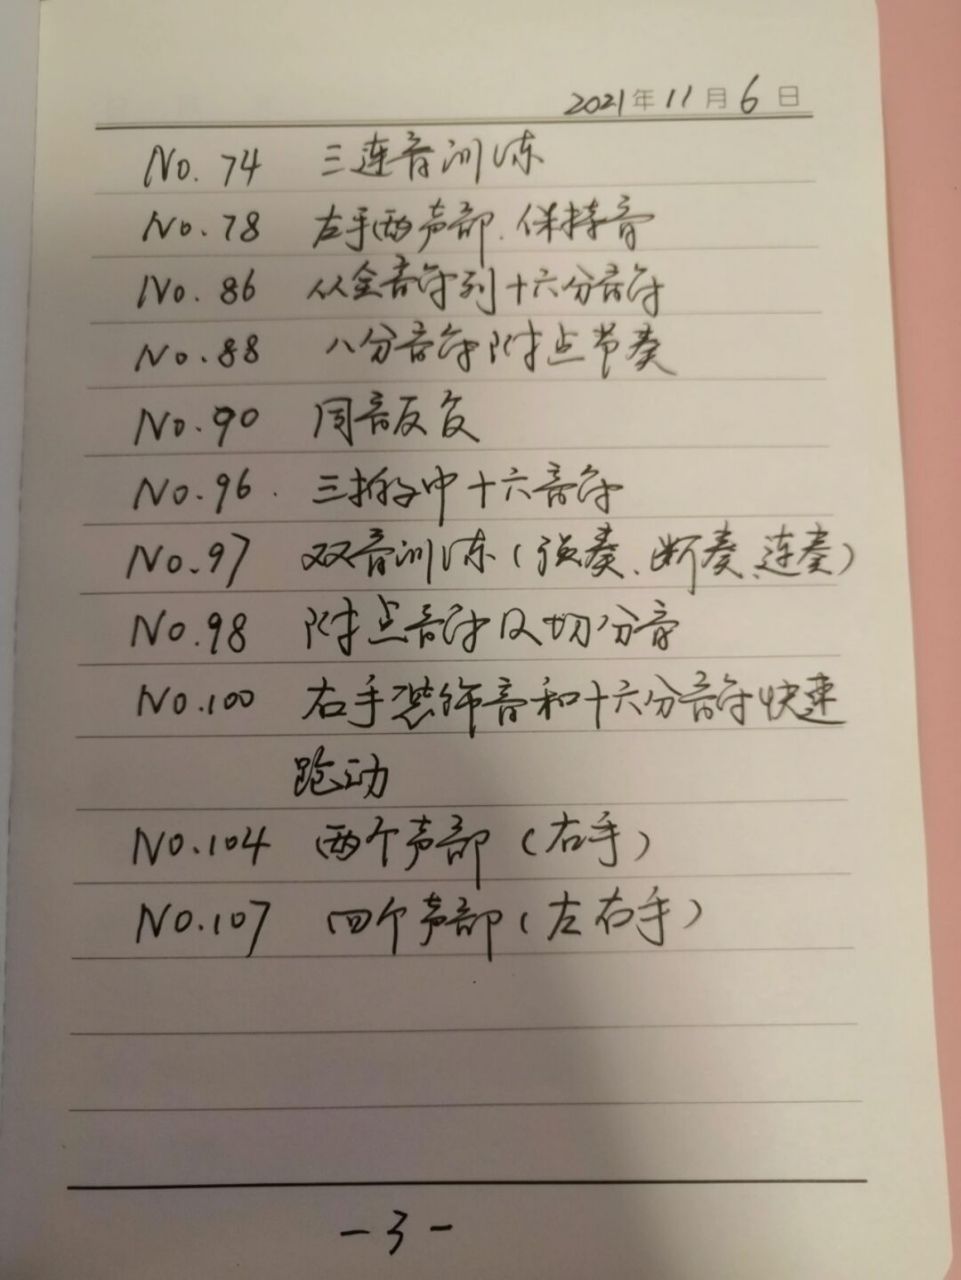 2021年11月6日
No.74 三连音训练
No.78 左手两声部、保持音
No.86 从全音符到十六分音符
No.88 八分音符附点节奏
No.90 同音反复
No.96. 三拍子中十六音符
No.97 双音训练(强奏、断奏、连奏)
No.98 附点音符及切分音
No.100 右手装饰音和十六分音符快速
跑动
No.104 两个声部(右手)
No.107 四个声部(左右手)
-3-